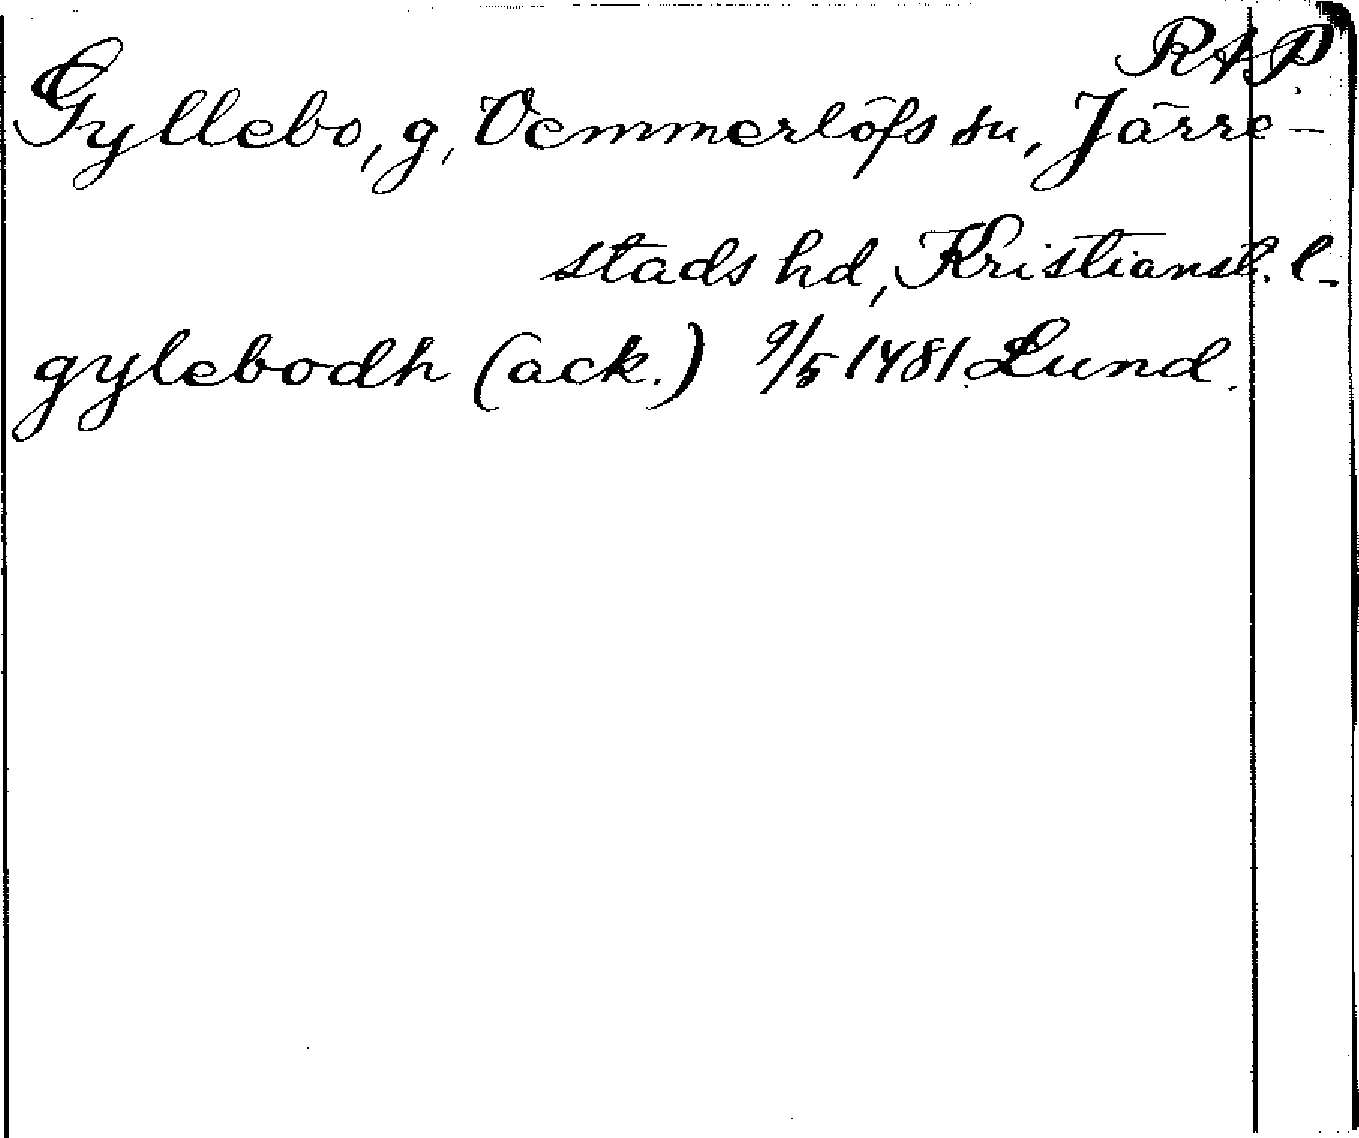 RAP.
Gyllebo, g, Vemmerlöfs sn, Järre-
stads hd, Kristianst. l.
gylebodh (ack.) 9/5 1481 Lund.